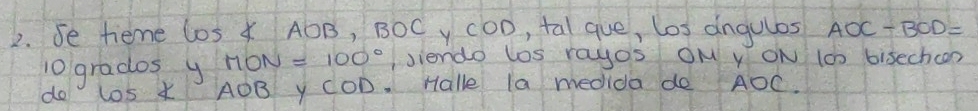 2. Se tiene los ∡ AOB, BOC y COD, tal que, los ángulos AOC - BOD =
10 grados y MON = 100°, siendo los rayos OM y ON las bisectices
de los ∡ AOB y COD. Halle la medida de AOC.